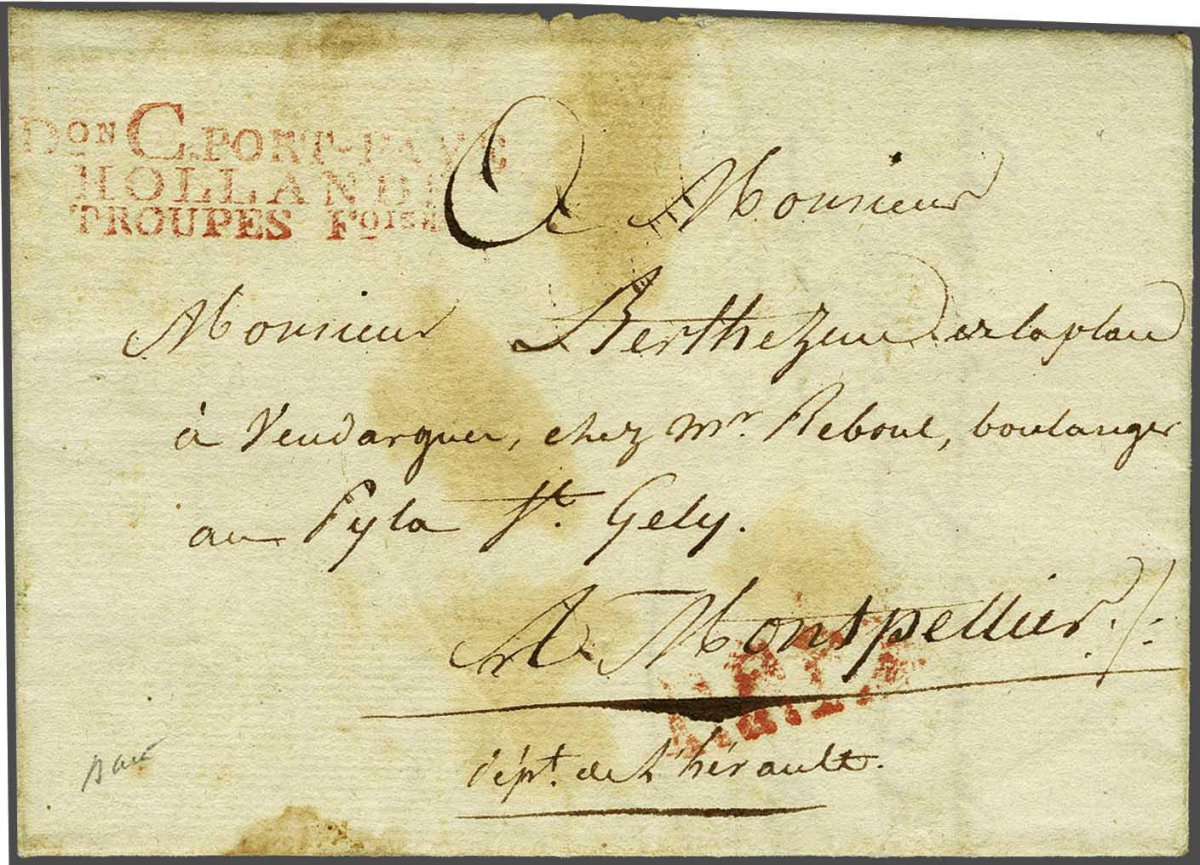 Don C. PORT-PAYÉ
HOLLANDE
TROUPES Foises
A Monsieur
Monsieur Berthezene de la place
à Vendargues, chez Mr. Reboul, boulanger
au Pyla St. Gely.
A Montpellier./.
dépt. de L'hérault.